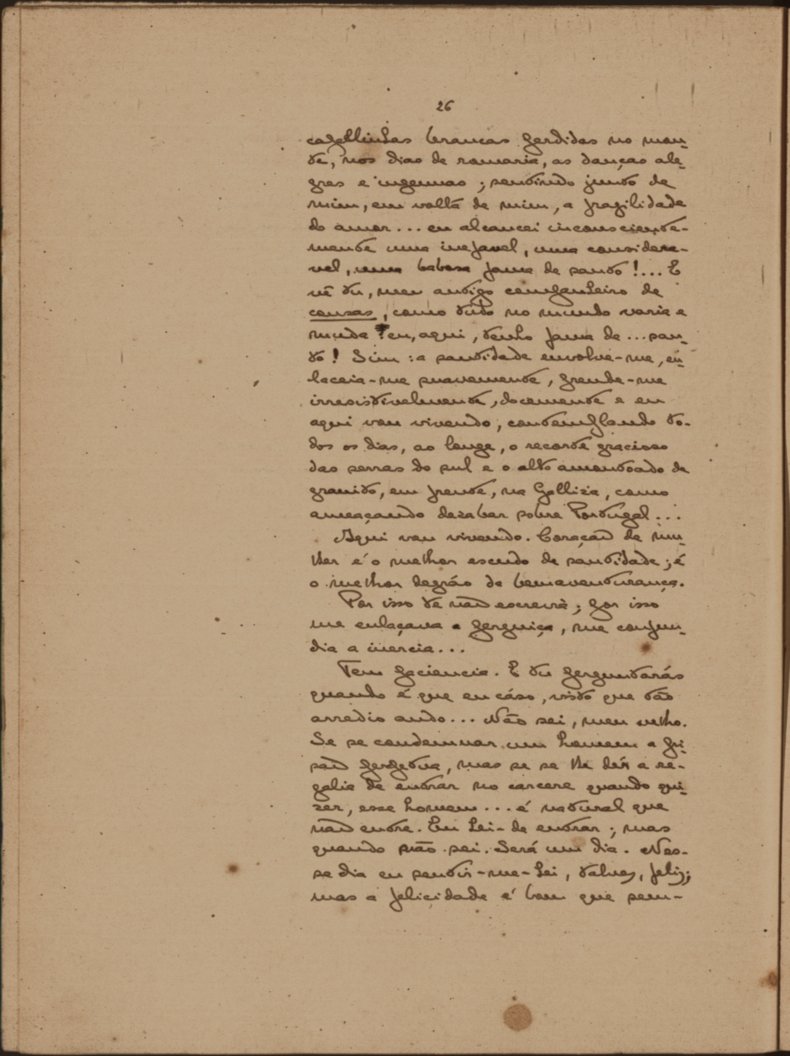 26
capellinhas brancas perdidas no mon-
te, nos dias de romaria, as danças ale-
gres e ingenuas; sentindo junto de
mim, em volta de mim, a fragilidade
do amor... eu alcancei inconsciente-
mente uma invejavel, uma considera-
vel, uma bebesa fama de santo!... E
vê tu, meu antigo companheiro de
cousas, como tudo no mundo varia e
muda! eu, aqui, tenho fama de... san-
to! Sim: a santidade envolve-me, en-
laceia-me suavemente, prende-me
irresistivelmente, docemente e eu
aqui vou vivendo, contemplando to-
dos os dias, ao longe, o recorte gracioso
das serras do sul e o alto amontoado de
granito, em frente, na Galliza, como
ameaçando desabar sobre Portugal...
Aqui vou vivendo. Coração de mu-
lher é o melhor escudo de santidade; é
o melhor degráo da bemaventurança.
Por isso te não escrevia; por isso
me enlaçava a perguiça, me confun-
dia a inercia...
Tem paciencia. E tu perguntarás
quando é que eu cáso, visto que tão
arredio ando... Não sei, meu velho.
Se se condemnar um homem a pri-
são perpetua, mas se se lhe dér a re-
galia de entrar no carcere quando qui-
zer, esse homem... é natural que
não entre. Eu hei-de entrar; mas
quando não sei. Será um dia. Nes-
se dia eu sentir-me-hei, talvez, feliz;
mas a felicidade é bom que sem-